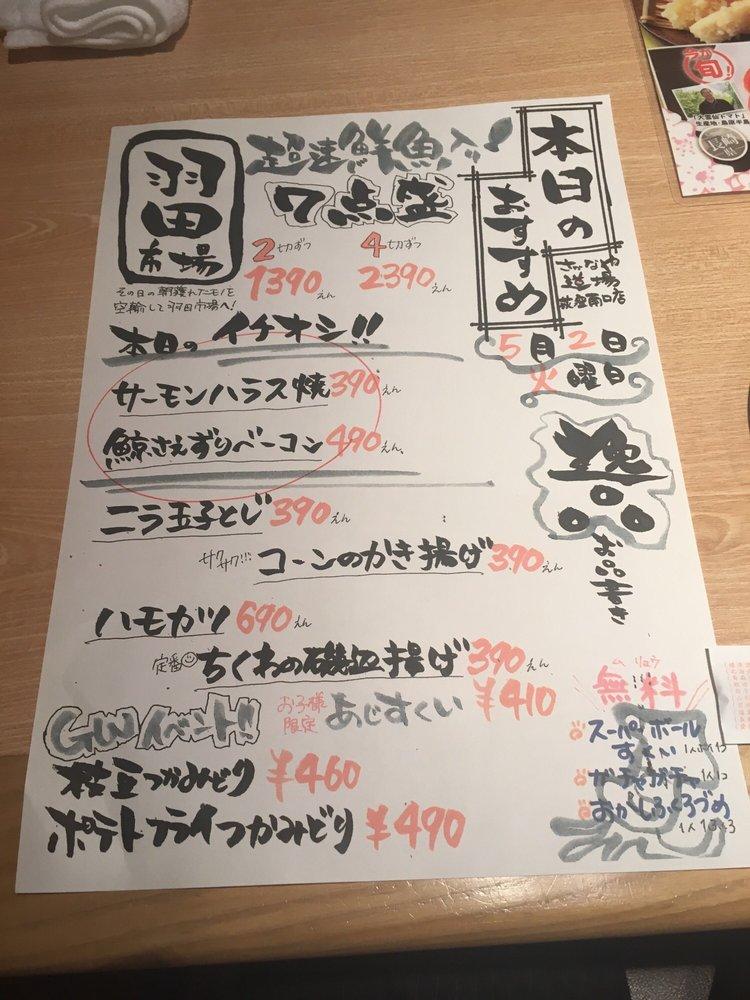 本日の
おすすめ
さかなや
道場
南口店
羽田
市場
その日の朝獲れたモノを
空輸して羽田市場へ!
超速鮮魚入り!
7点盛
2切ずつ 4切ずつ
1390えん 2390えん
5月2日
火曜日
逸品
お品書き
本日のイチオシ!!
サーモンハラス焼390えん
鯨さえずりベーコン490えん
ニラ玉子とじ390えん
サクサク!!! コーンのかき揚げ390えん
ハモカツ690えん
定番 ちくわの磯辺揚げ390えん
GWイベント!!
お子様限定 あじすくい ¥410
枝豆つかみどり ¥460
ポテトフライつかみどり ¥490
ムリョウ
無料
スーパーボール
すくい
ガチャガチャ
おかしふくろづめ
今が
旬!
「大雲仙トマト」
生産地・島原半島
長崎県